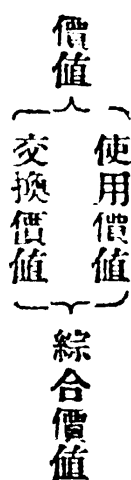 價值
使用價值
交換價值
綜合價值